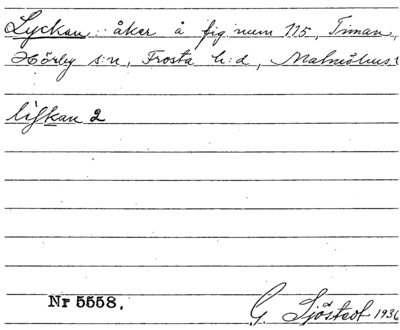 Lyckan åker å fig num 115, Timan,
Hörby s:n, Frosta h:d, Malmöhus
likkan 2
Nr 5558. G. Sjöstedt 1936